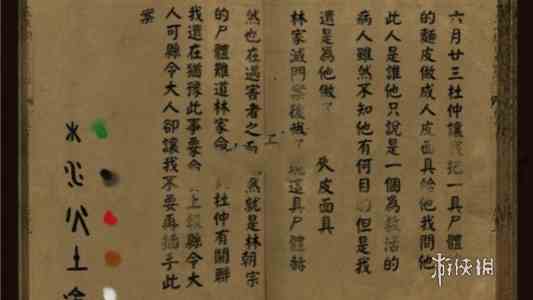 六月廿三杜仲讓我把一具尸體
的麵皮做成人皮面具給他我問他
此人是誰他只說是一個為救活的
病人雖然不知他有何目的但是我
還是為他做了 皮面具
林家滅門案後 了 這具尸體赫
然也在遇害者之 然就是林朝宗
的尸體難道林家命 杜仲有關聯
我還在猶豫此事要 上 縣令大
人可縣令大人卻讓我不要再插手此
案
水
心
火
土
金
游侠网